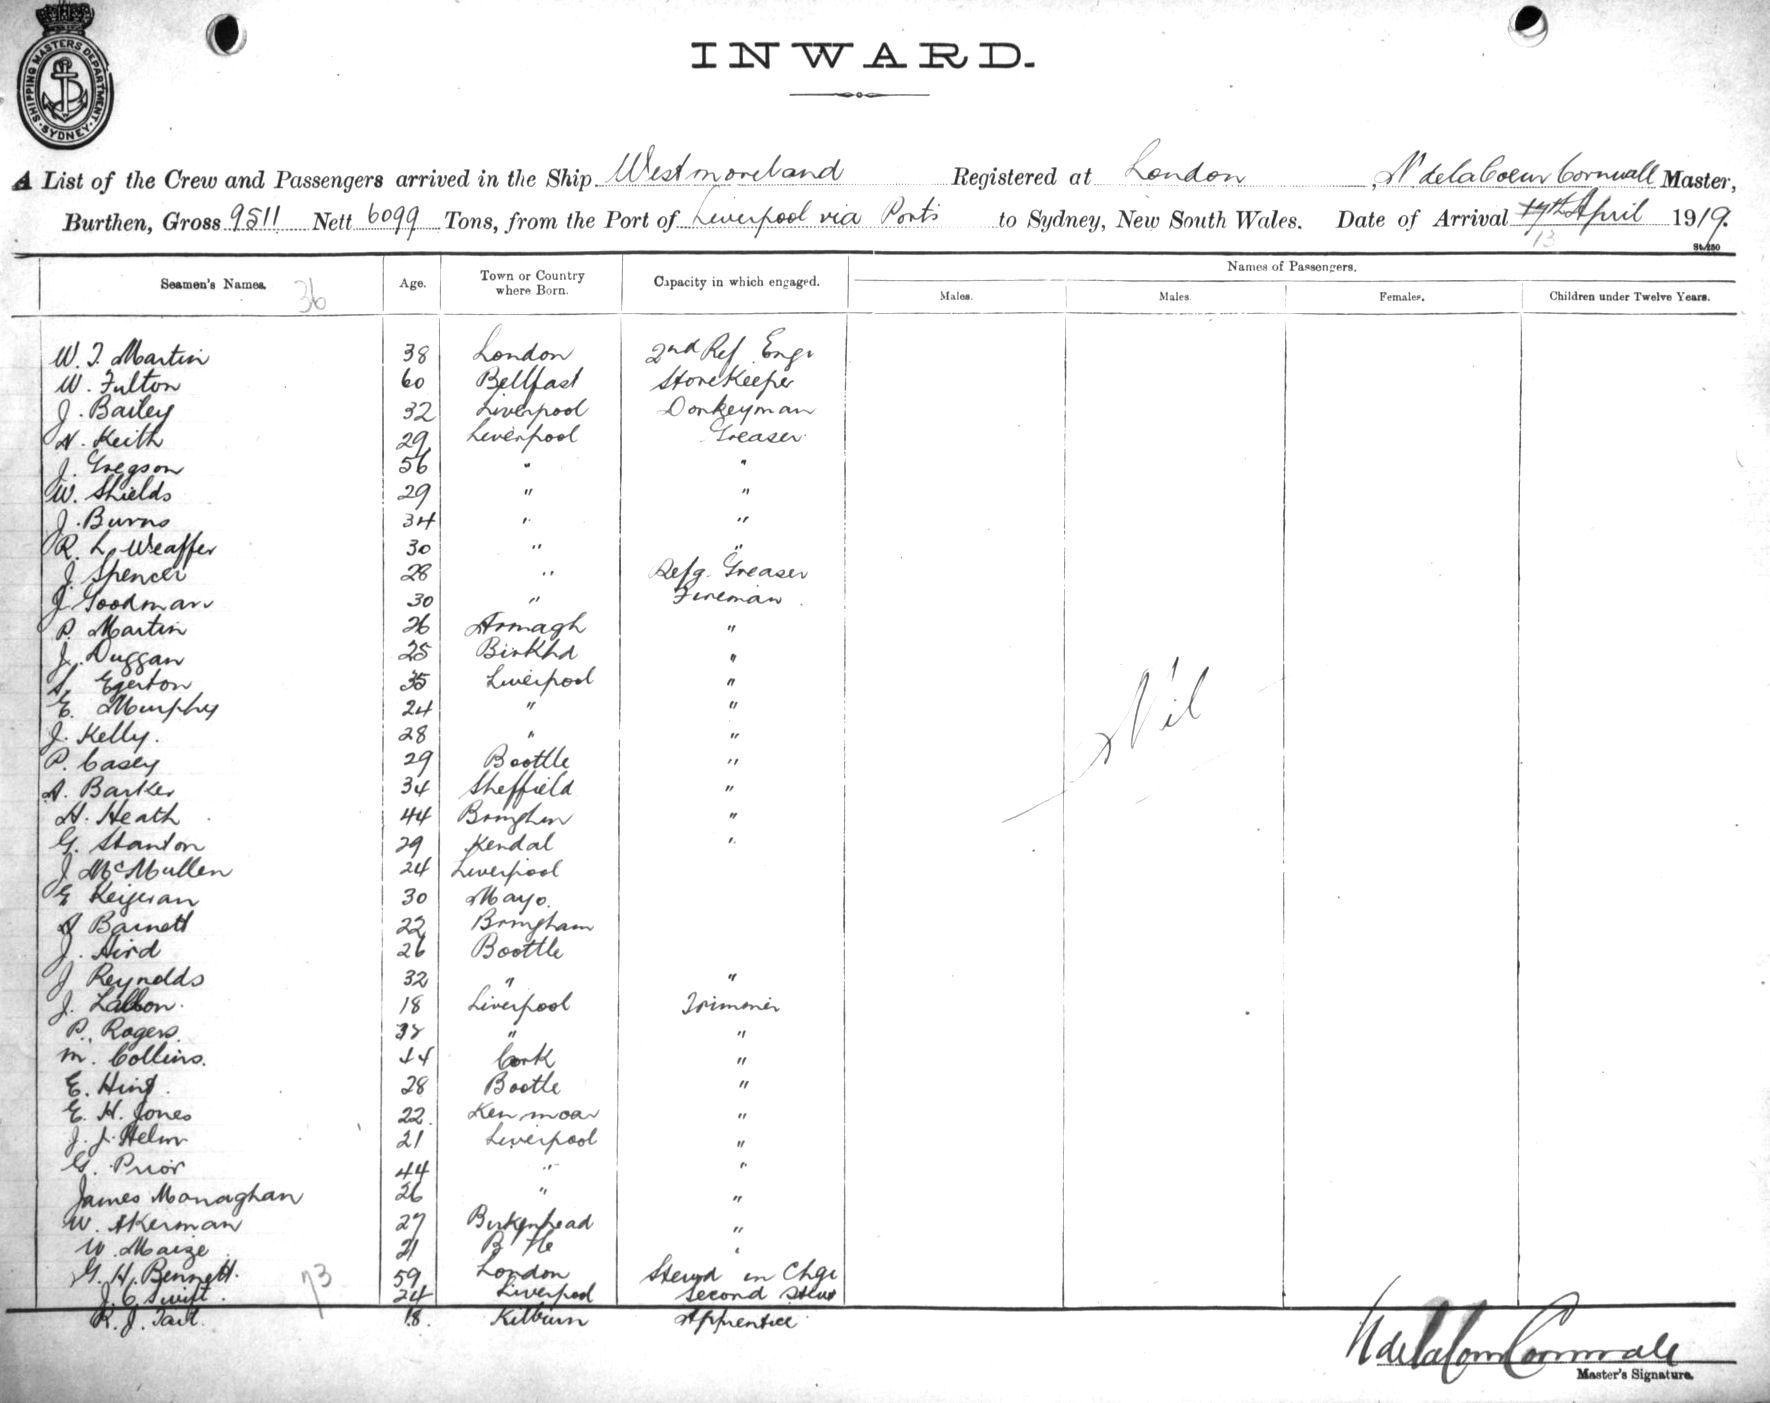 SHIPPING MASTERS DEPARTMENT. SYDNEY.
INWARD.
A List of the Crew and Passengers arrived in the Ship Westmoreland Registered at London , N de la Coeur Cornwall Master,
Burthen, Gross 9511 Nett 6099 Tons, from the Port of Liverpool via Ports to Sydney, New South Wales. Date of Arrival 17th April 1919.
13
St. 250
Seamen's Names. 36 Age. Town or Country where Born. Capacity in which engaged. Names of Passengers.
Males. Males. Females. Children under Twelve Years.
W. T. Martin 38 London 2nd Ref Engr
W. Fulton 60 Bellfast StoreKeeper
J. Bailey 32 Liverpool Donkeyman
Keith 29 Liverpool Greaser
J. Gregson 56 " "
W. Shields 29 " "
J. Burns 34 " "
R. L. Weaffer 30 " "
J. Spencer 28 " Refg. Greaser
J. Goodman 30 " Fireman
P. Martin 26 Armagh "
J. Duggan 25 Birkhd "
S. Egerton 35 Liverpool "
E. Murphy 24 " "
J. Kelly. 28 " "
P. Casey 29 Boottle "
A. Barker 34 Sheffield "
H. Heath 44 Brmghm "
G. Stanton 29 Kendal "
J McMullen 24 Liverpool
E 30 Mayo.
Barnett 22 Brmgham
J. Aird 26 Boottle
J Reynolds 32 " "
J. 18 Liverpool Trimmer
P. Rogers. " "
M. Collins. 44 Cork "
E. 28 Bootle "
E. H. Jones 22. Kenmoar "
J. J. Helm 21 Liverpool "
G. Prior 44 " "
James Monaghan 26 " "
W. Akerman 27 Birkenhead "
W. Maize 21 B tle "
G. H. Bennett. 59 London Stewd in Chge
J. C. Swift. 24 Liverpool Second Stew
R. J. Tait. 18. Kilburn Apprentice
73
Nil
N de la Coeur Cornwall
Master's Signature.